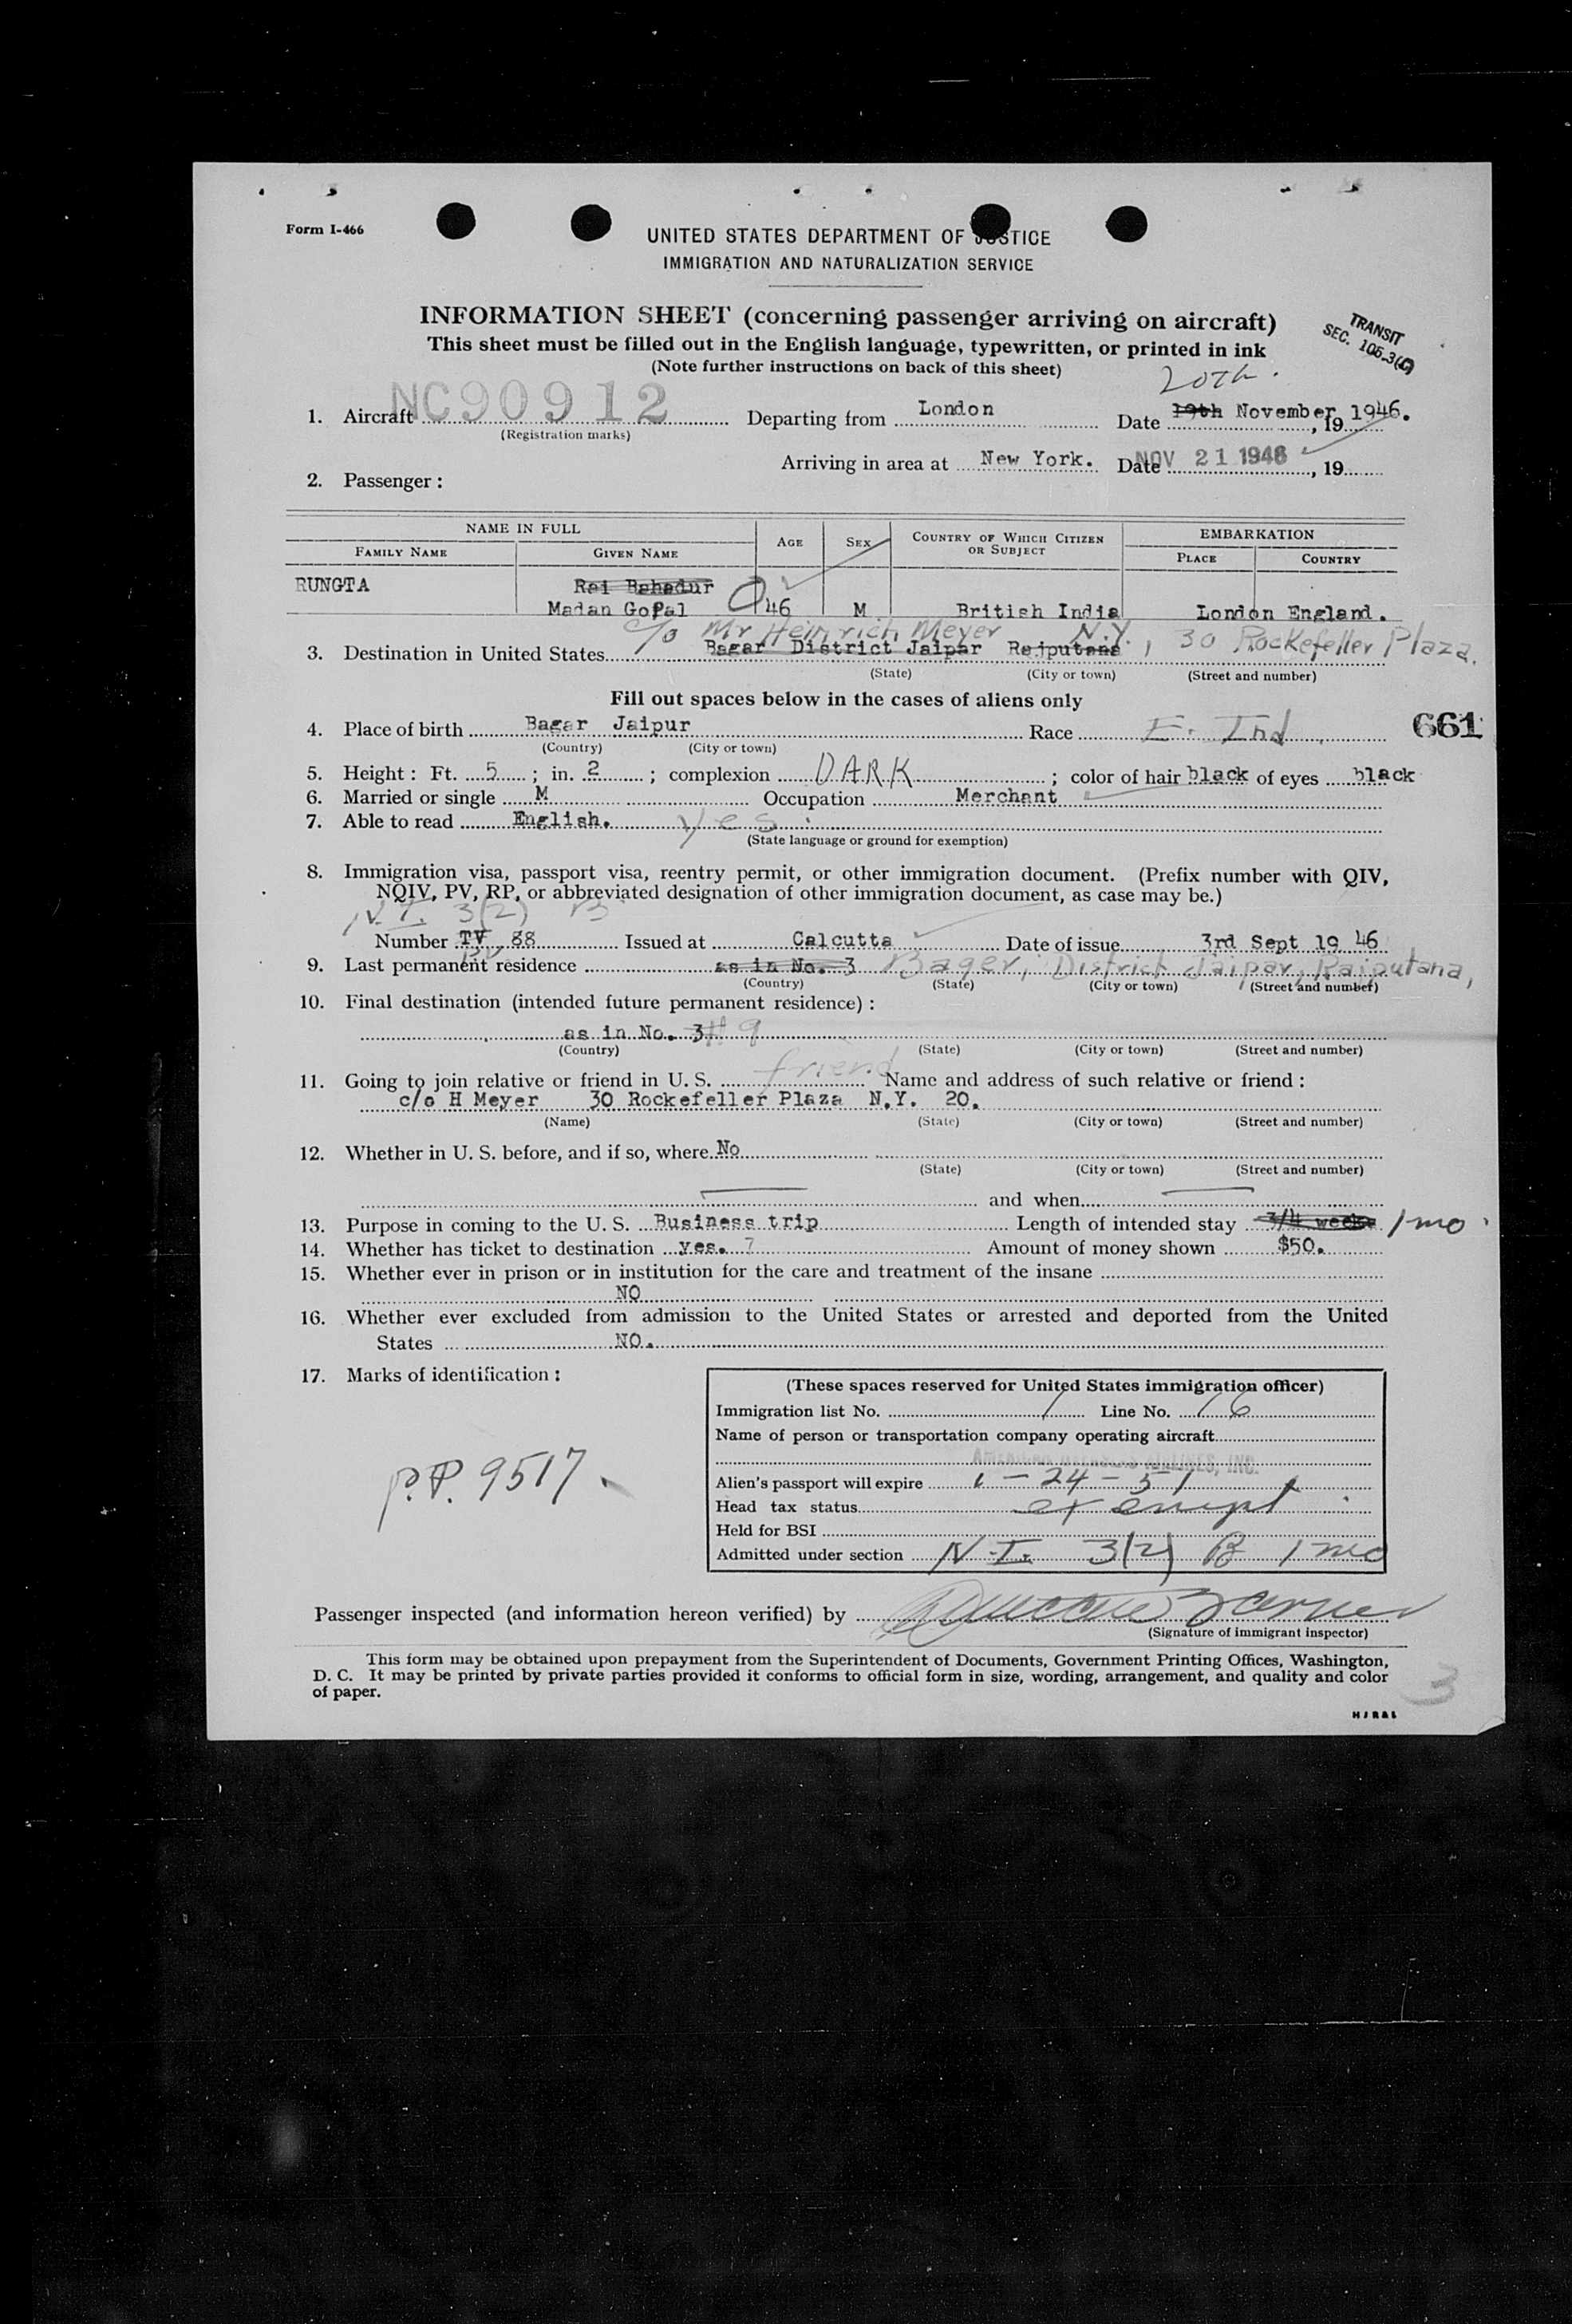 Form I-466
UNITED STATES DEPARTMENT OF JUSTICE
IMMIGRATION AND NATURALIZATION SERVICE
INFORMATION SHEET (concerning passenger arriving on aircraft)
This sheet must be filled out in the English language, typewritten, or printed in ink
(Note further instructions on back of this sheet)
TRANSIT
SEC. 105.3(C)
20th.
1. Aircraft NC90912 Departing from London Date 19th November, 19 1946.
(Registration marks)
Arriving in area at New York. Date NOV 21 1946, 19
2. Passenger:
NAME IN FULL AGE SEX COUNTRY OF WHICH CITIZEN OR SUBJECT EMBARKATION
FAMILY NAME GIVEN NAME PLACE COUNTRY
RUNGTA Rai Bahadur
Madan Gopal 46 M British India London England.
c/o Mr Heinrich Meyer N.Y., 30 Rockefeller Plaza.
3. Destination in United States Bagar District Jaipar Rajputana
(State) (City or town) (Street and number)
Fill out spaces below in the cases of aliens only
4. Place of birth Bagar Jaipur Race E. Ind. 661
(Country) (City or town)
5. Height: Ft. 5; in. 2; complexion DARK; color of hair black of eyes black
6. Married or single M Occupation Merchant
7. Able to read English. yes
(State language or ground for exemption)
8. Immigration visa, passport visa, reentry permit, or other immigration document. (Prefix number with QIV,
NQIV, PV, RP, or abbreviated designation of other immigration document, as case may be.)
N.I. 3(2) B
Number TV 88 Issued at Calcutta Date of issue 3rd Sept 19 46
PV
9. Last permanent residence as in No. 3 Bager, District Jaipar, Rajputana,
(Country) (State) (City or town) (Street and number)
10. Final destination (intended future permanent residence):
as in No. 3 # 9
(Country) (State) (City or town) (Street and number)
11. Going to join relative or friend in U. S. friend Name and address of such relative or friend:
c/o H Meyer 30 Rockefeller Plaza N.Y. 20.
(Name) (State) (City or town) (Street and number)
12. Whether in U. S. before, and if so, where No
(State) (City or town) (Street and number)
and when
13. Purpose in coming to the U. S. Business trip Length of intended stay 3/4 weeks 1 mo.
14. Whether has ticket to destination yes. 7 Amount of money shown $50.
15. Whether ever in prison or in institution for the care and treatment of the insane
NO
16. Whether ever excluded from admission to the United States or arrested and deported from the United
States NO.
17. Marks of identification:
(These spaces reserved for United States immigration officer)
Immigration list No. 1 Line No. 16
Name of person or transportation company operating aircraft
AMERICAN OVERSEAS AIRLINES, INC.
P.P. 9517.
Alien's passport will expire 1-24-51
Head tax status exempt
Held for BSI
Admitted under section N.I. 3(2) B 1 mo
Passenger inspected (and information hereon verified) by
(Signature of immigrant inspector)
This form may be obtained upon prepayment from the Superintendent of Documents, Government Printing Offices, Washington,
D. C. It may be printed by private parties provided it conforms to official form in size, wording, arrangement, and quality and color
of paper.
3